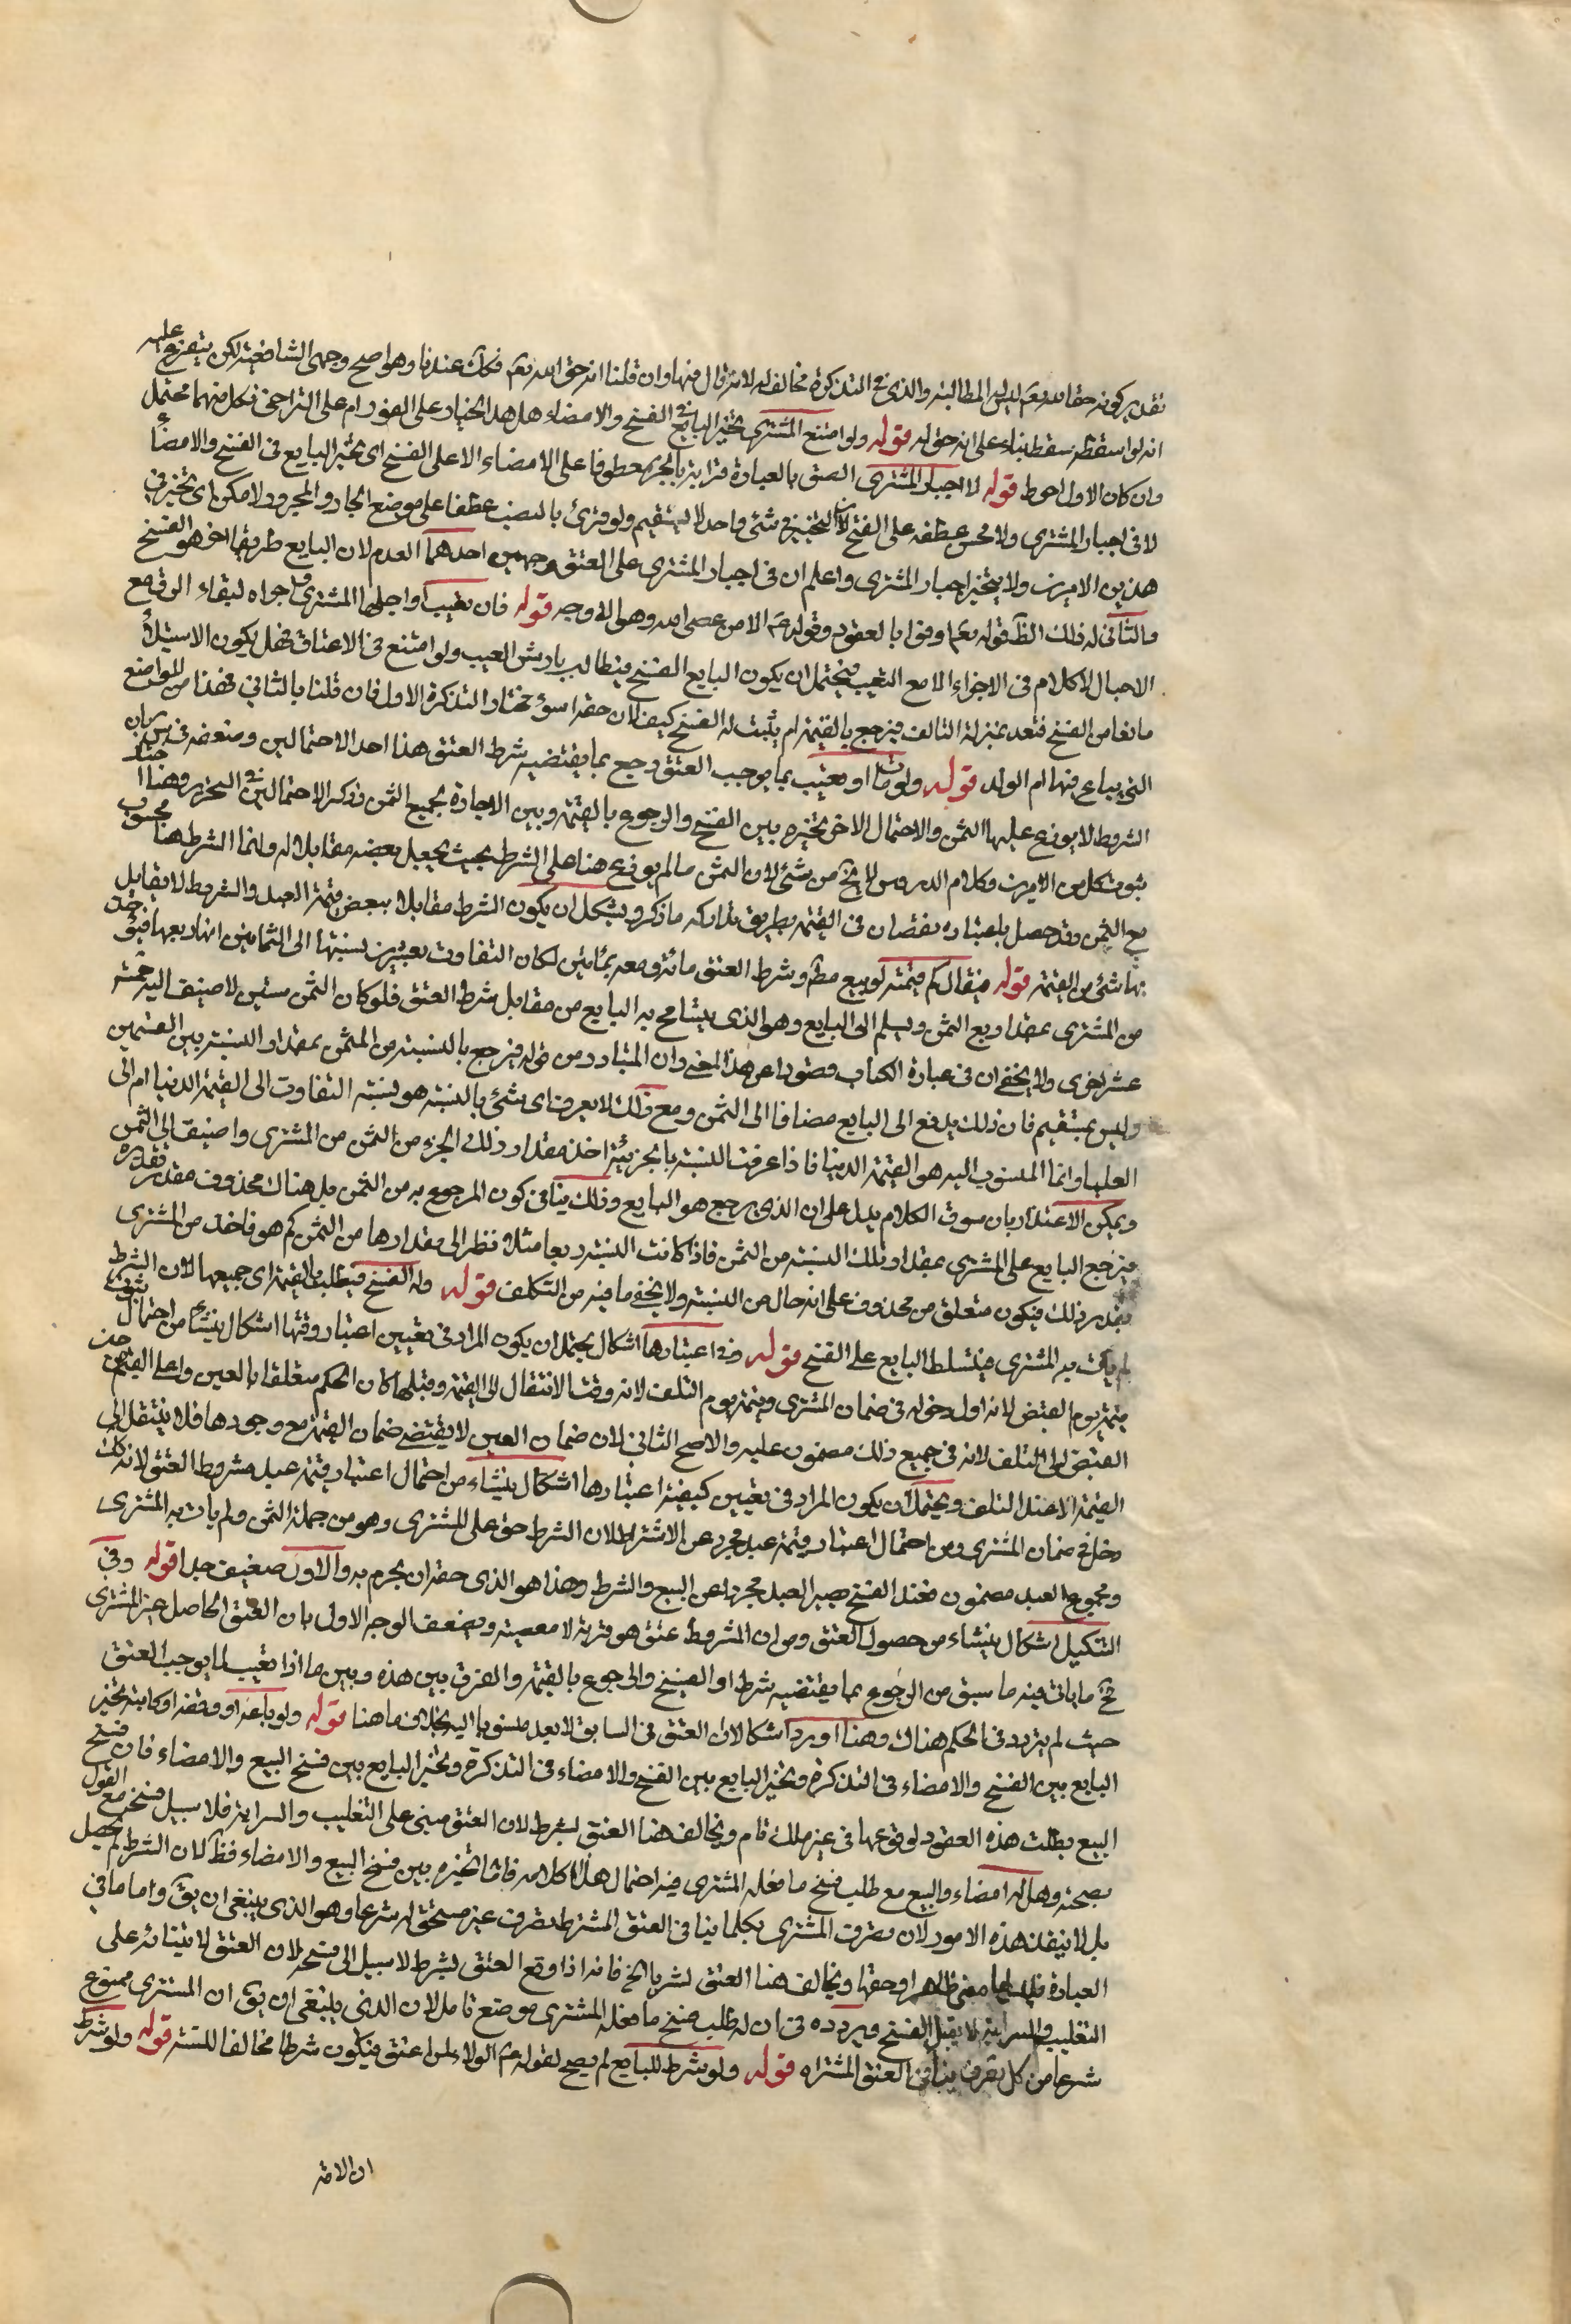 تقدير كونه حقا لله تعم ليس له المطالبة والذى فى التذكرة مخالف له لانه قال فيها وان قلنا انه حق الله تعم فكك عندنا وهو اصح وجهى الشافعية لكن يتفرع عليه
انه لو اسقطه سقط بناء على انه حق له قوله ولو امتنع المشترى تخير البايع فى الفسخ والامضاء هل هذا الخيار على الفور ام على التراخى فكل منهما محتمل
وان كان الاول احوط قوله لا اجبار المشترى الصق بالعبارة قرائته بالجر معطوفا على الامضاء لا على الفسخ اى تخير البايع فى الفسخ والامضاء
لا فى اجبار المشترى ولا يحسن عطفه على الفسخ لان التخيير فى شئ واحد لا يستقيم ولو قرئ بالنصب عطفا على موضع الجار والمجرور لامكن اى تخير فى
هذين الامرين ولا يتخير اجبار المشترى واعلم ان فى اجبار المشترى على العتق وجهين احدهما العدم لان البايع طريقا اخر هو الفسخ
والثانى له ذلك الظ قوله تعم اوفوا بالعقود وقوله عم الا من عصى الله وهو الاوجه قوله فان تعيب او احبلها المشترى اجزاه لبقاء الرق مع
الاحبال لا كلام فى الاجزاء الا مع التعيب فيحتمل ان يكون البايع الفسخ فيطالب بارش العيب ولو امتنع فى الاعتاق فهل يكون الاستيلاد
مانعا من الفسخ فتعد بمنزلة التالف فيرجع بالقيمة ام يثبت له الفسخ كيف كان حقه اسوء مختار التذكرة الاول فان قلنا بالثانى فهذا من المواضع
التى يباع فيها ام الولد قوله ولو مات او تعيب بما يوجب العتق رجع بما يقتضيه شرط العتق هذا احد الاحتمالين
الشروط لا يوزع عليها الثمن والاحتمال الاخر تخيره بين الفسخ والرجوع بالقيمة وبين الاجازة بجميع الثمن ذكره الاحتمالين فى التحرير وهنا
من الامرين وكلام الدروس لا يخ من شئ لان الثمن مالم يوزع هنا على الشرط بحيث يجعل بعضه مقابلا له وانما الشرط هنا محسوب
مع الثمن وقد حصل باعتباره نقصان فى القيمة بطريق تداركه ما ذكر ويشكل ان يكون الشرط مقابلا ببعض قيمة العبد والشروط لا يقابل
بها شئ من القيمة قوله فيقال كم قيمته لو بيع مطم وشرط العتق مائة ومعه بثمانين لكان التفاوت بعشرين نسبتها الى الثمانين انها ربعها فيؤخذ
من المشترى بمقدار ربع الثمن ويسلم الى البايع وهو الذى يتسامح به البايع من مقابل شرط العتق فلو كان الثمن ستين لاضيف اليه خمسة
عشر اخرى ولا يخفى ان فى عبارة الكتاب قصورا عن هذا المعنى وان المتبادر من قوله فيرجع بالنسبة من الثمن بمقدار النسبة بين القيمتين
وليس بمستقيم فان ذلك يدفع الى البايع مضافا الى الثمن ومع ذلك لا يعرف اى شئ بالنسبة هو نسبة التفاوت الى القيمة الدنيا ام الى
العليا وانما المنسوب اليه هو القيمة الدنيا فاذا عرفت النسبة بالجزئية اخذ مقدار ذلك الجزء من الثمن من المشترى واضيف الى الثمن
ويمكن الاعتذار بان سوق الكلام يدل على ان الذى يرجع هو البايع وذلك ينافى كون المرجوع به من الثمن بل هناك محذوف مقدر تقديره
فيرجع البايع على المشترى بمقدار تلك النسبة من الثمن فاذا كانت النسبة ربعا مثلا نظر الى مقدارها من الثمن كم هو فاخذ من المشترى
بقدر ذلك فيكون متعلق من محذوف على انه حال من النسبة ولا يخفى ما فيه من التكلف قوله وله الفسخ فيطلب القيمة اى جميعها لان الشرط
لم يأت به المشترى فيتسلط البايع على الفسخ قوله وفى اعتبارها اشكال يحتمل ان يكون المراد فى تعيين اعتبار وقتها اشكال ينشأ من احتمال
قيمة يوم القبض لانه اول دخوله فى ضمان المشترى وقيمة يوم التلف لانه وقت الانتقال الى القيمة وقبلها كان الحكم متعلقا بالعين واعلى القيم من حين
القبض الى التلف لانه فى جميع ذلك مضمون عليه والاصح الثانى لان ضمان العين لا يقتضى ضمان القيمة مع وجودها فلا ينتقل الى
القيمة الا عند التلف ويحتمل ان يكون المراد فى تعيين كيفية اعتبارها اشكال ينشاء من احتمال اعتبار قيمة عبد مشروط العتق لانه كك
دخل فى ضمان المشترى ومن احتمال اعتبار قيمة عبد مجرد عن الاشتراط لان الشرط حق على المشترى وهو من جملة الثمن ولم يأت به المشترى
ومجموع العبد مضمون فعند الفسخ يصير العبد مجردا عن البيع والشرط وهذا هو الذى حقه ان يجزم به والاول ضعيف جدا قوله وفى
التنكيل اشكال ينشاء من حصول العتق ومن ان المشروط عتق هو قربة لا معصية ويضعف الوجه الاول بان العتق الحاصل غير المشترى
فح ما يأتى فيه ما سبق من الرجوع بما يقتضيه شرط او الفسخ والرجوع بالقيمة والفرق بين هذه وبين ما اذا تعيب بما يوجب العتق
حيث لم يتردد فى الحكم هناك وهنا اورد اشكالا ان العتق فى السابق لا يعد منسوبا اليه بخلاف ما هنا قوله ولو باعه او وقفه او كاتبه تخير
البايع بين الفسخ والامضاء فى التذكرة وتخير البايع بين الفسخ والامضاء فى التذكرة وتخير البايع بين فسخ البيع والامضاء فان فسخ
البيع بطلت هذه العقود لوقوعها فى غير ملك تام ويخالف هذا العتق بشرط لان العتق مبنى على التغليب والسراية فلا سبيل فسخه مع القول
بصحته وهل له امضاء والبيع مع طلب فسخ ما فعله المشترى فيه احتمال هذا كلامه فاما تخيره بين فسخ البيع والامضاء فظ لان الشرط لم يحصل
بل لا ينفذ هذه الامور لان تصرف المشترى بكلما ينافى العتق المشترط تصرف غير مستحق له شرعا وهو الذى ينبغى ان يق واما ما فى
العبارة ظاهر او حقها ويخالف هذا العتق بشرط الخ فانه اذا وقع العتق بشرط لا سبيل الى فسخه لان العتق لابتنائه على
التغليب والسراية لا يقبل الفسخ وتردده فى ان له طلب فسخ ما فعله المشترى موضع تأمل لان الذى ينبغى ان يق ان المشترى ممنوع
شرعا من كل تصرف ينافى العتق المشتراه قوله ولو شرط للبايع لم يصح لقوله عم الولاء لمن اعتق فيكون شرطا مخالفا للسنة قوله ولو شرط
ان الامة